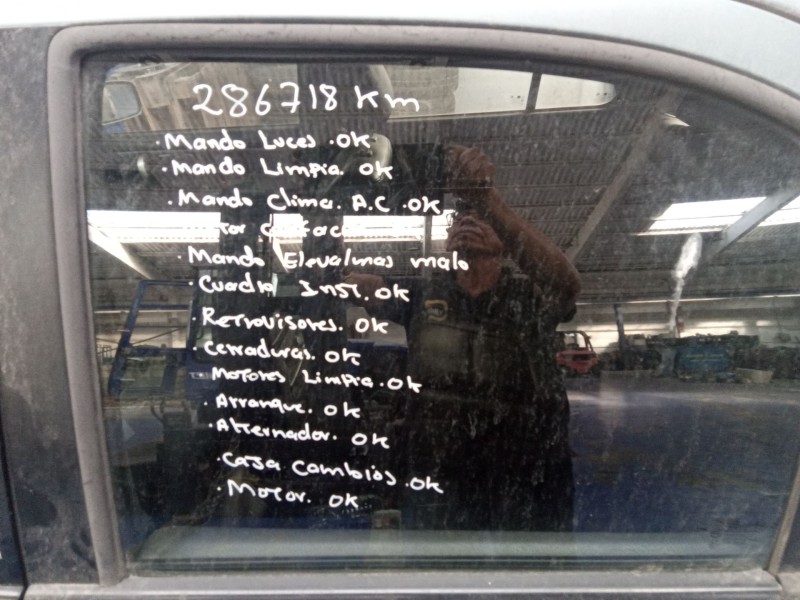 286718 Km
· Mando Luces . OK
· Mando Limpia. OK
· Mando Clima. A.C . OK
· Mando Elevalmas malo
· Cuadro Inst. OK
· Retrovisores. OK
· Cerraduras. OK
Motores Limpia . OK
· Arranque. OK
· Alternador. OK
· Casa Cambios . OK
· Motor. OK